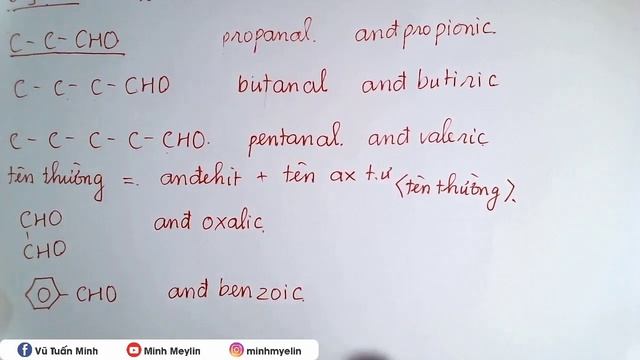 C - C - CHO propanal. anđ propionic
C - C - C - CHO butanal anđ butiric
C - C - C - C - CHO. pentanal. anđ valeric
tên thường = anđehit + tên ax t.ư (tên thường).
CHO
CHO anđ oxalic
CHO anđ benzoic
Vũ Tuấn Minh Minh Meylin minhmyelin